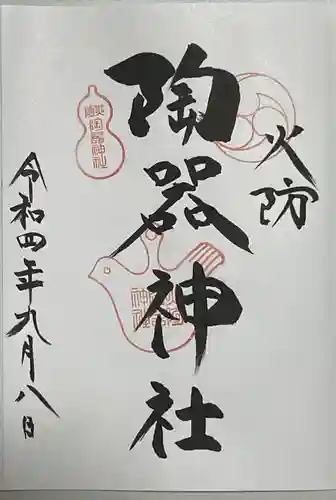 火防
陶器神社
令和四年九月八日